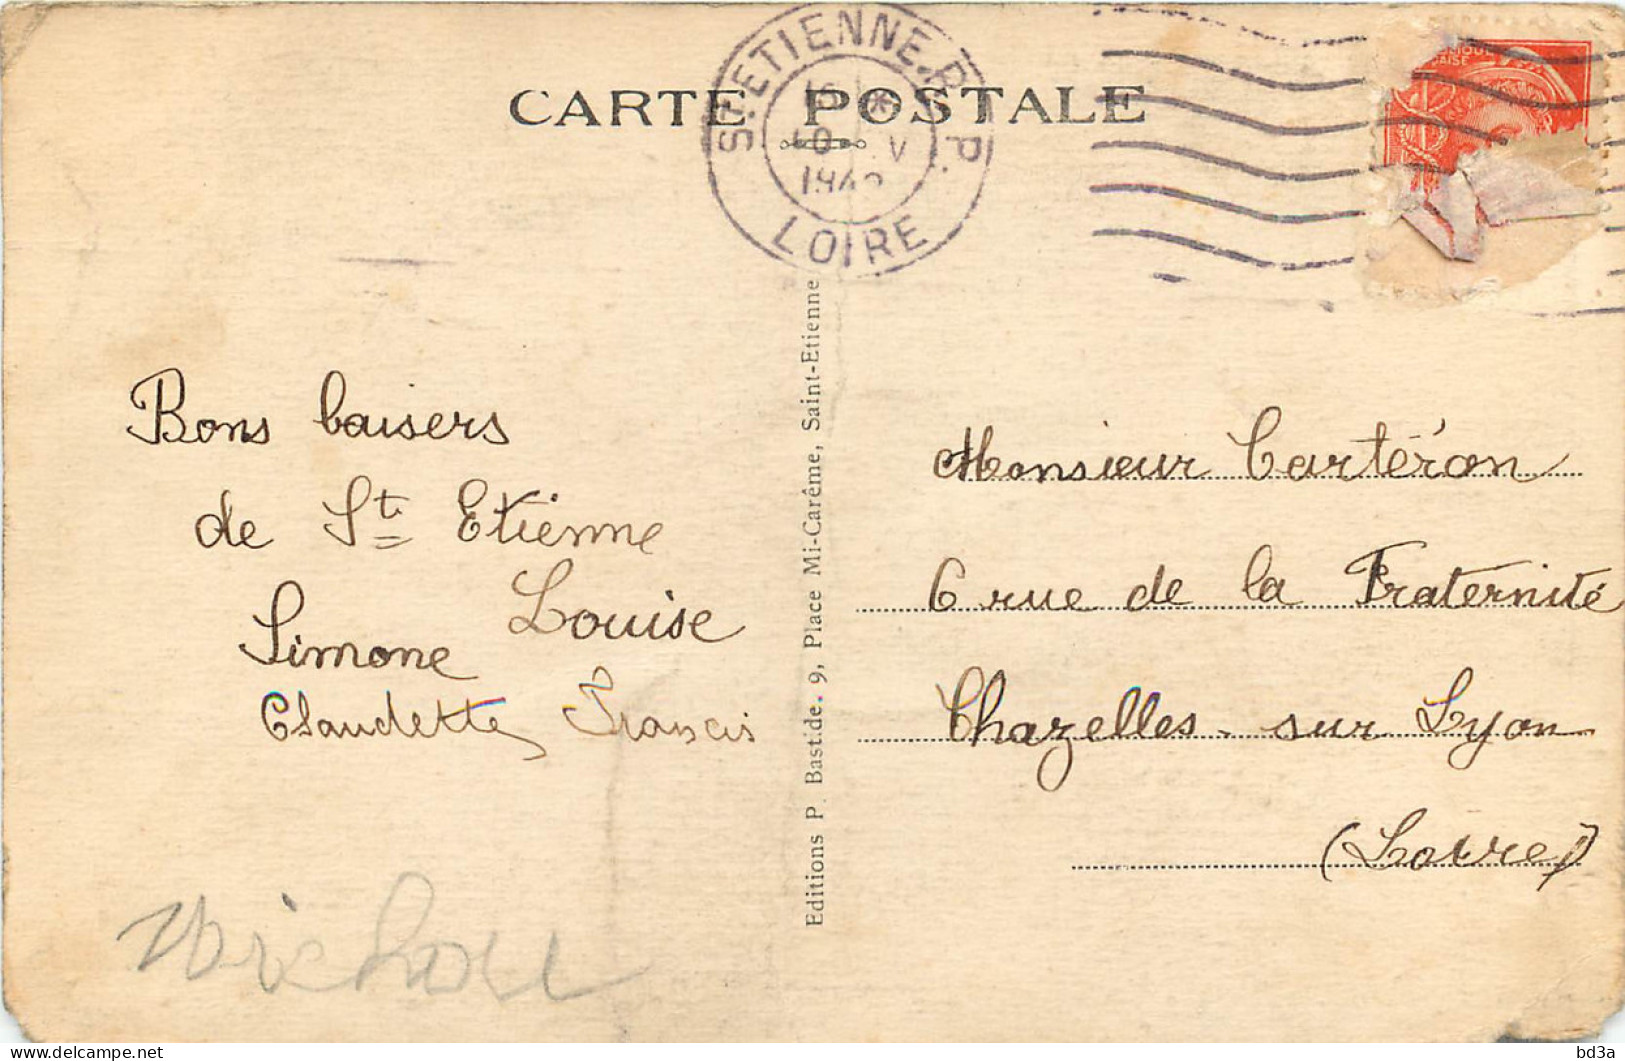 CARTE POSTALE
ST ETIENNE R.P.
LOIRE
Bons baisers
de St Etienne
Louise
Simone
Claudette Francis
Editions P. Bastide. 9, Place Mi-Carême, Saint-Etienne
Monsieur Cartéron
6 rue de la Fraternité
Chazelles-sur Lyon
(Loire)
www.delcampe.net
bd3a